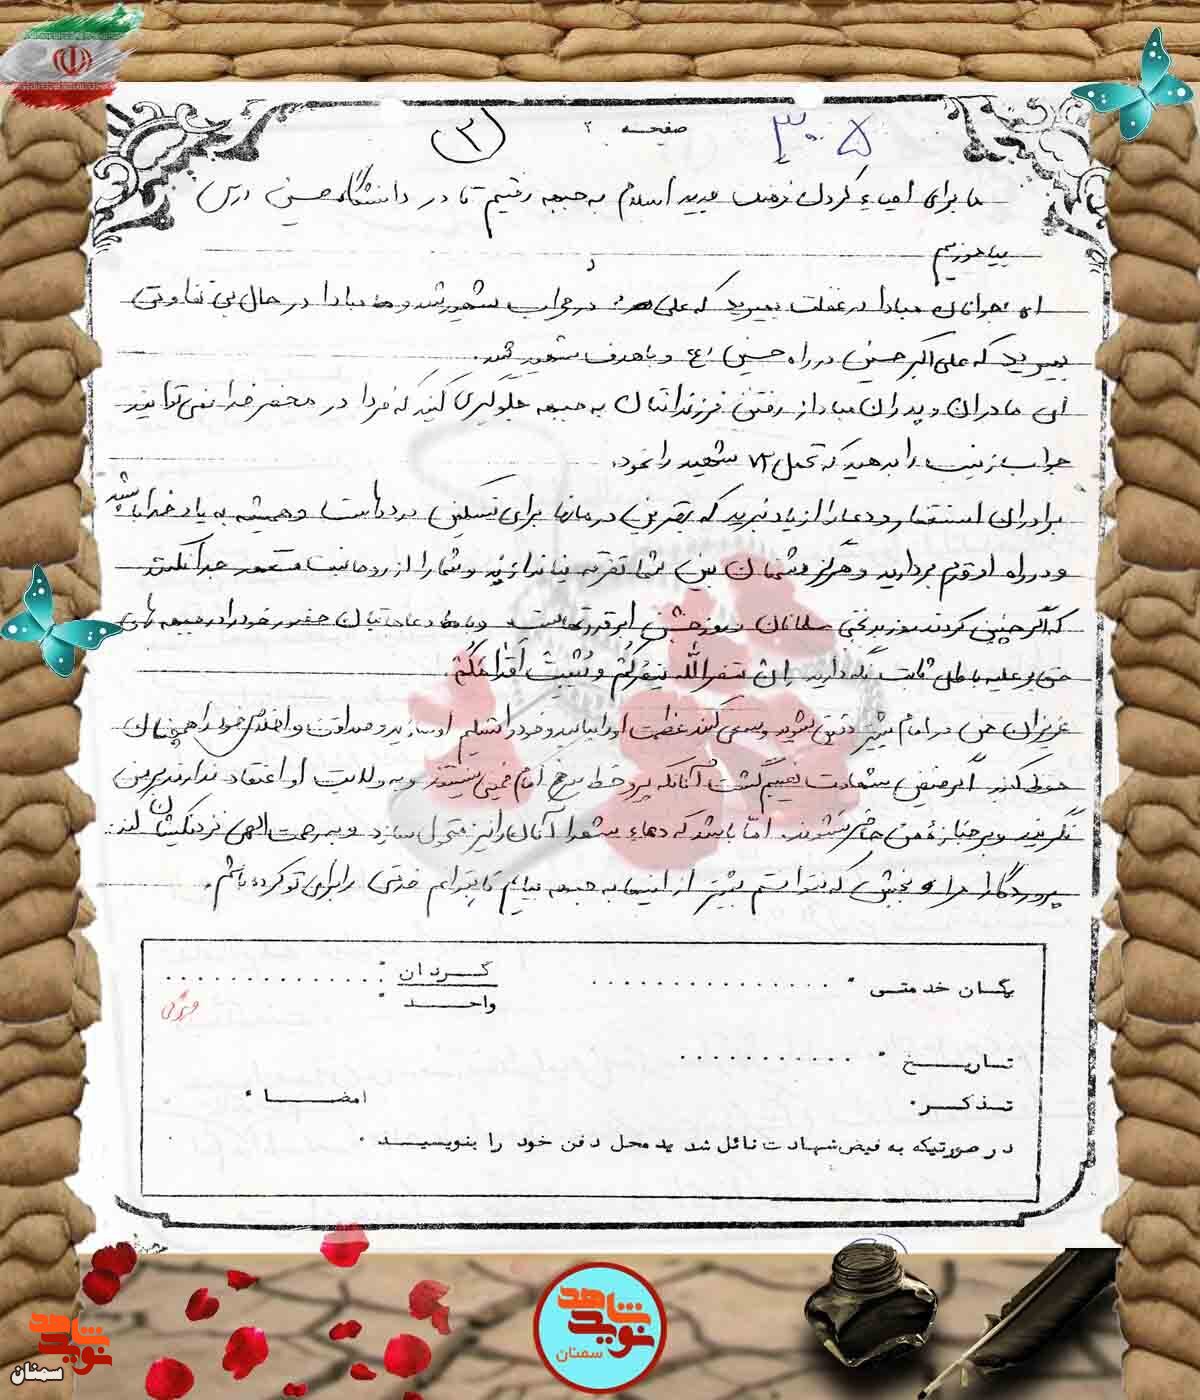 صفحه ۲
۳
۳۰۵
ما برای احیاء کردن فرهنگ جدید اسلام به جبهه رفتیم تا در دانشگاه حسینی درس
بیاموزیم
ای جوانان مبادا در غفلت بمیرید که علی در محراب شهید شد و مبادا در حال بی تفاوتی
بمیرید که علی اکبر حسین در راه حسین (ع) و با هدف شهید شد.
ای مادران و پدران مبادا از رفتن فرزندانتان به جبهه جلوگیری کنید که فردا در محضر خدا نمی توانید
جواب زینب را بدهید که تحمل ۷۲ شهید را نمود.
برادران استغفار و دعا را از یاد نبرید که بهترین درمانها برای تسکین دردهاست و همیشه به یاد خدا باشید
و در راه او قدم بردارید و هرگز دشمنان بین شما تفرقه نیاندازند و شما را از روحانیت متعهد جدا نکنند
که اگر چنین کردند روز بدبختی مسلمانان و روز جشن ابرقدرتهاست حضور خود را در جبهه های
حق بر علیه باطل ثابت نگه دارید إن تنصرالله ینصرکم و یثبت أقدامکم.
عزیزان من در امام بیشتر دقیق شوید و سعی کنید عظمت او را بیابید و خود را تسلیم او سازید و صداقت و اخلاص خود را همچنان
حفظ کنید اگر فیض شهادت نصیبم گشت آنانکه پیرو خط سرخ امام خمینی نیستند و به ولایت او اعتقاد ندارند بر من
نگریند و بر جنازه من حاضر نشوند. اما باشد که دماء شهدا آنان را نیز متحول سازد و به رحمت الهی نزدیکشان کند.
پروردگارا مرا ببخش که نتوانستم بیشتر از اینها به جبهه بیایم تا بتوانم خدمتی را برای تو کرده باشم.
یگان خدمتی :
گردان :
واحد :
تاریخ :
تذکر .
امضاء :
در صورتیکه به فیض شهادت نائل شدید محل دفن خود را بنویسید .
نوید شاهد
سمنان
نوید شاهد
سمنان